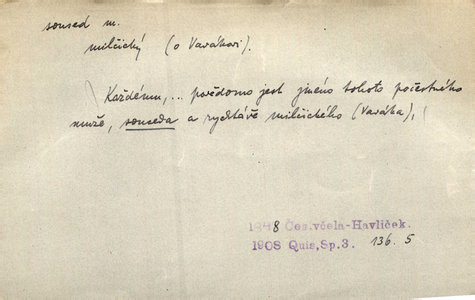 soused m.
milčický (o Vavákovi).
Každému,... povědomo jest jméno tohoto počestného
muže, souseda a rychtáře milčického (Vaváka),
1848 Čes.včela-Havlíček.
1908 Quis,Sp.3. 136. 5